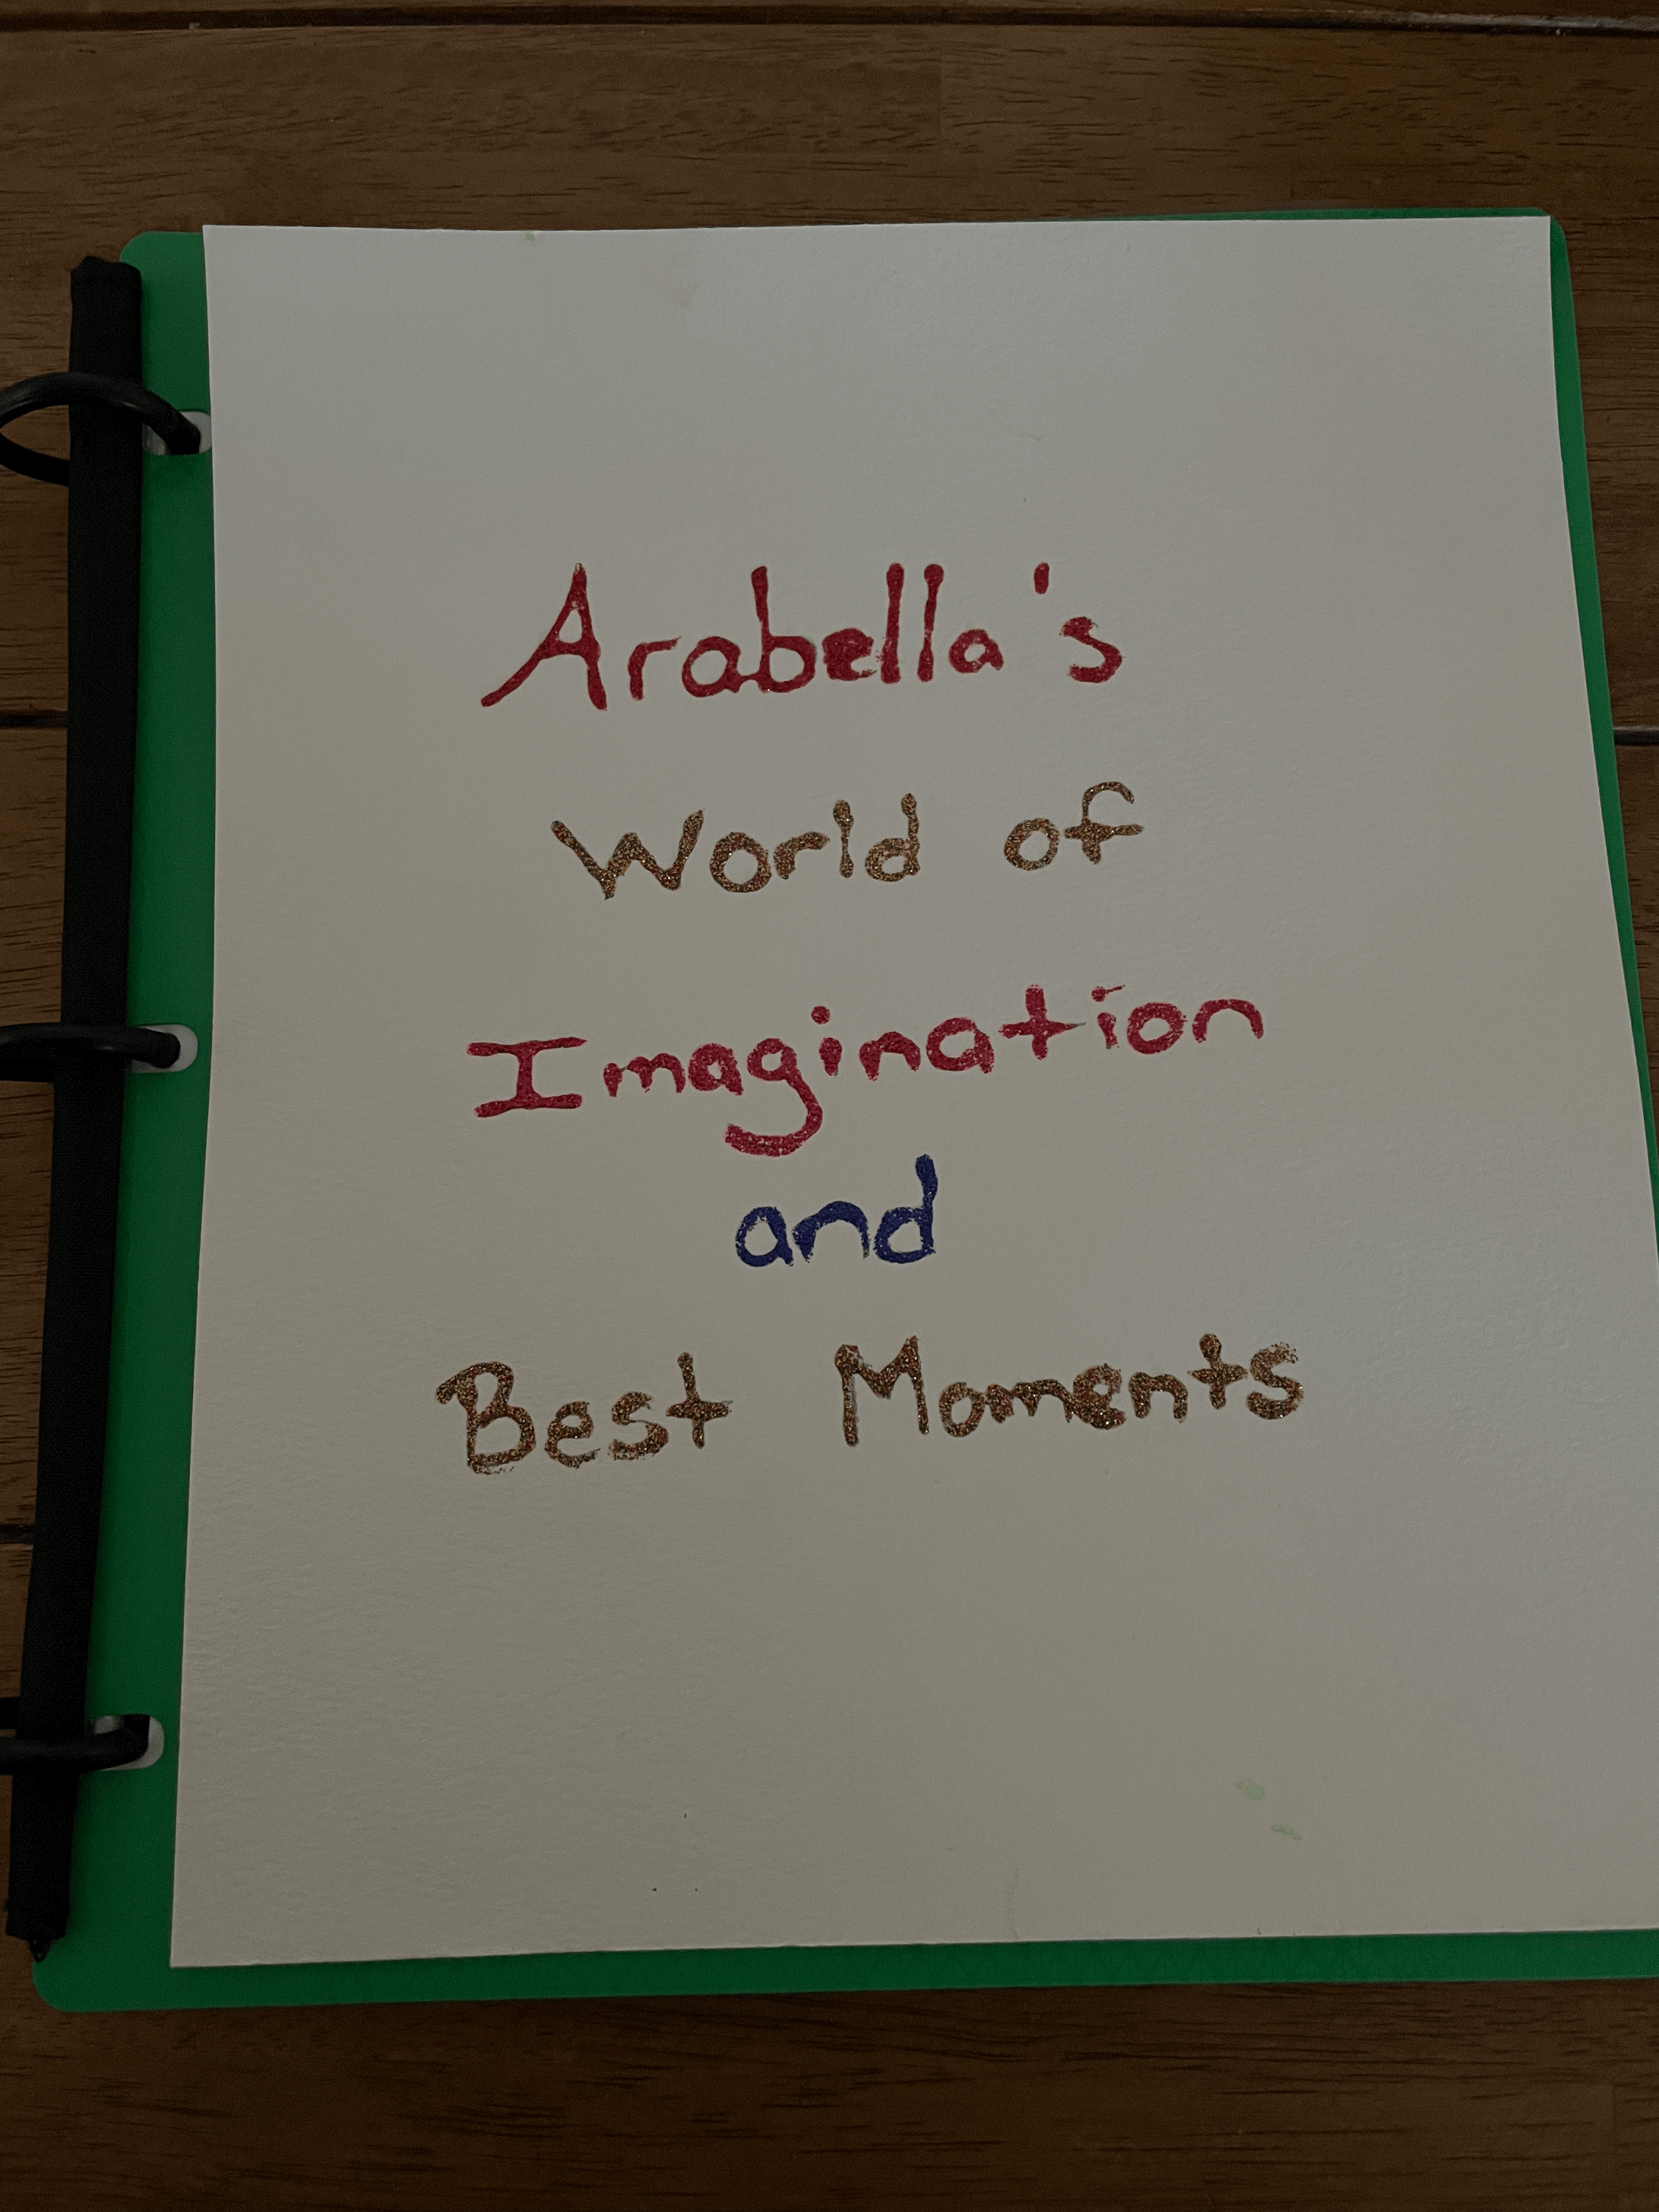 Arabella's
World of
Imagination
and
Best Moments